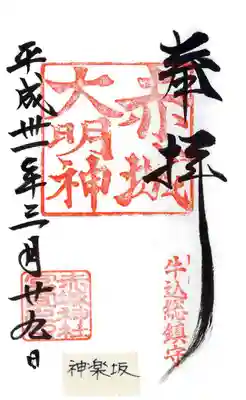 奉拝
赤城
大明神
牛込総鎮守
平成卅一年三月廿九日
神楽坂